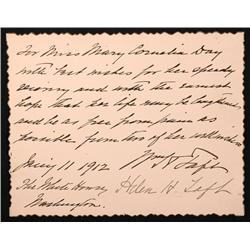 For Miss Mary Cornelia Day
with best wishes for her speedy
recovery and with the earnest
hope that her life may be
and be as free from pain as
possible from two of her
11 1912 Wm H Taft
The White House, Helen H. Taft
Washington.